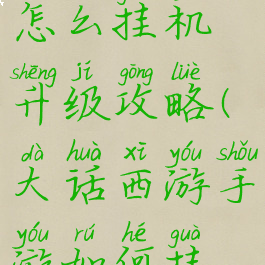 怎么挂机
shēng jí gōng lüè
升级攻略(
dà huà xī yóu shǒu
大话西游手
yóu rú hé guà
游如何挂